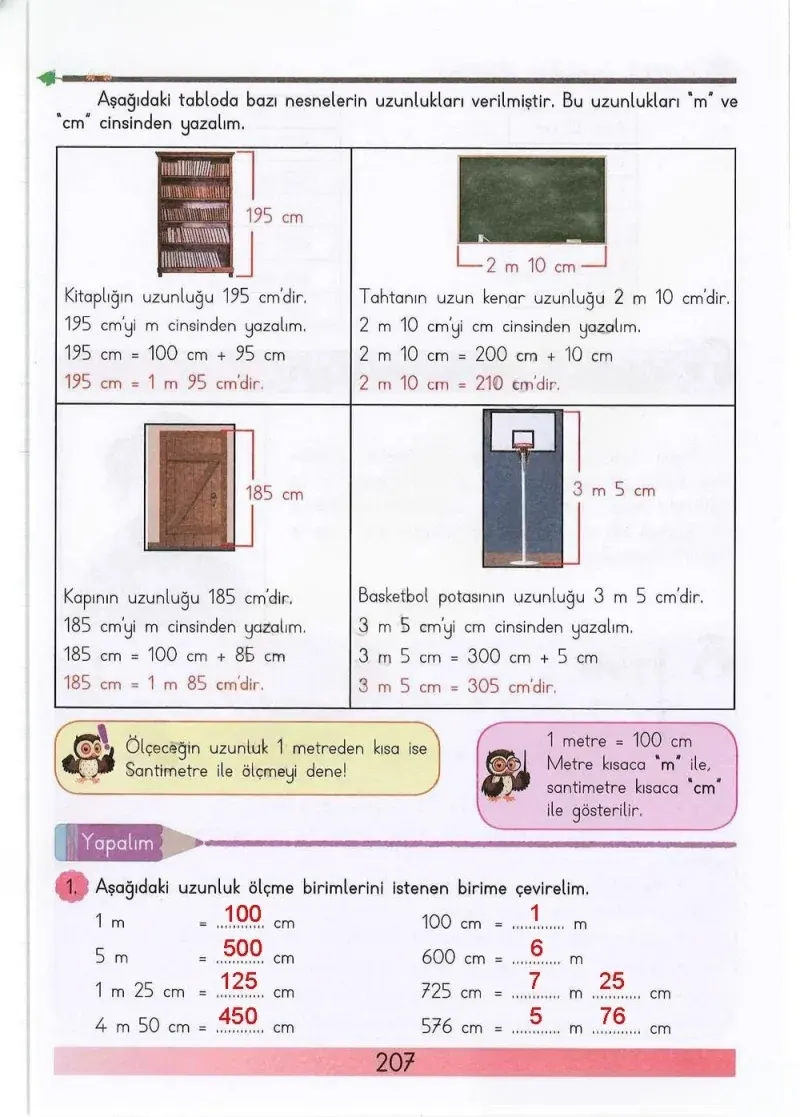 Aşağıdaki tabloda bazı nesnelerin uzunlukları verilmiştir. Bu uzunlukları "m" ve
"cm" cinsinden yazalım.
195 cm
Kitaplığın uzunluğu 195 cm'dir.
195 cm'yi m cinsinden yazalım.
195 cm = 100 cm + 95 cm
195 cm = 1 m 95 cm'dir.
2 m 10 cm
Tahtanın uzun kenar uzunluğu 2 m 10 cm'dir.
2 m 10 cm'yi cm cinsinden yazalım.
2 m 10 cm = 200 cm + 10 cm
2 m 10 cm = 210 cm'dir.
185 cm
Kapının uzunluğu 185 cm'dir.
185 cm'yi m cinsinden yazalım.
185 cm = 100 cm + 85 cm
185 cm = 1 m 85 cm'dir.
3 m 5 cm
Basketbol potasının uzunluğu 3 m 5 cm'dir.
3 m 5 cm'yi cm cinsinden yazalım.
3 m 5 cm = 300 cm + 5 cm
3 m 5 cm = 305 cm'dir.
Ölçeceğin uzunluk 1 metreden kısa ise
Santimetre ile ölçmeyi dene!
1 metre = 100 cm
Metre kısaca "m" ile,
santimetre kısaca "cm"
ile gösterilir.
Yapalım
1. Aşağıdaki uzunluk ölçme birimlerini istenen birime çevirelim.
1 m = 100 cm
5 m = 500 cm
1 m 25 cm = 125 cm
4 m 50 cm = 450 cm
100 cm = 1 m
600 cm = 6 m
725 cm = 7 m 25 cm
576 cm = 5 m 76 cm
207